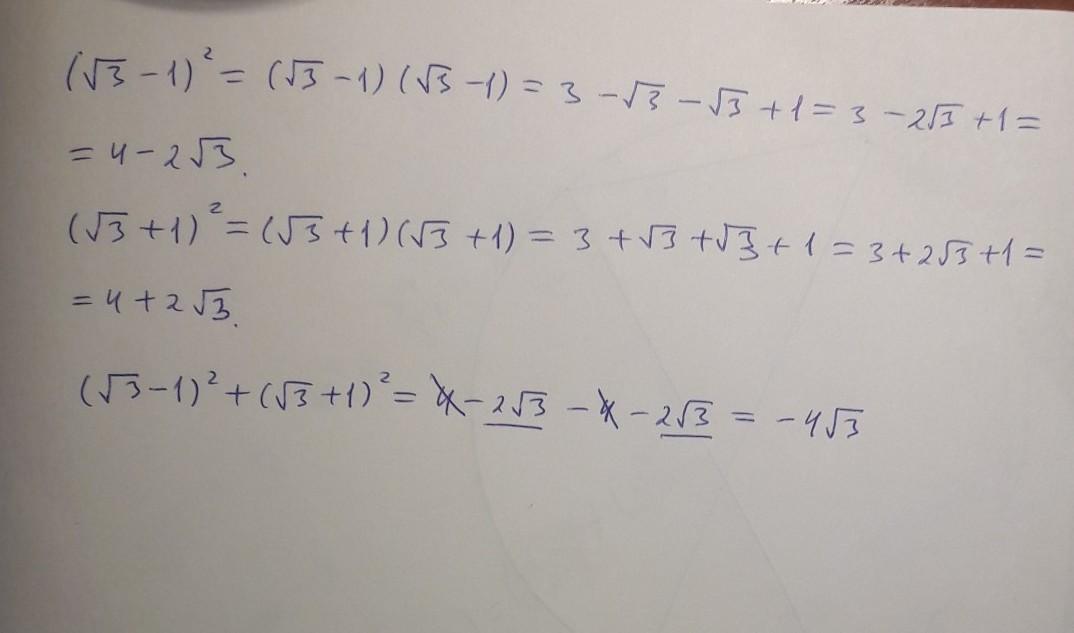 (√3 - 1)² = (√3 - 1)(√3 - 1) = 3 - √3 - √3 + 1 = 3 - 2√3 + 1 =
= 4 - 2√3.
(√3 + 1)² = (√3 + 1)(√3 + 1) = 3 + √3 + √3 + 1 = 3 + 2√3 + 1 =
= 4 + 2√3.
(√3 - 1)² + (√3 + 1)² = 4 - 2√3 - 4 - 2√3 = -4√3